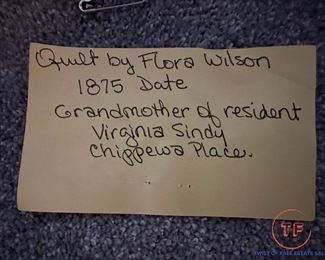 Quilt by Flora Wilson
1875 Date
Grandmother of resident
Virginia Sindy
Chippewa Place.
TF
TWIST OF FATE ESTATE SALES